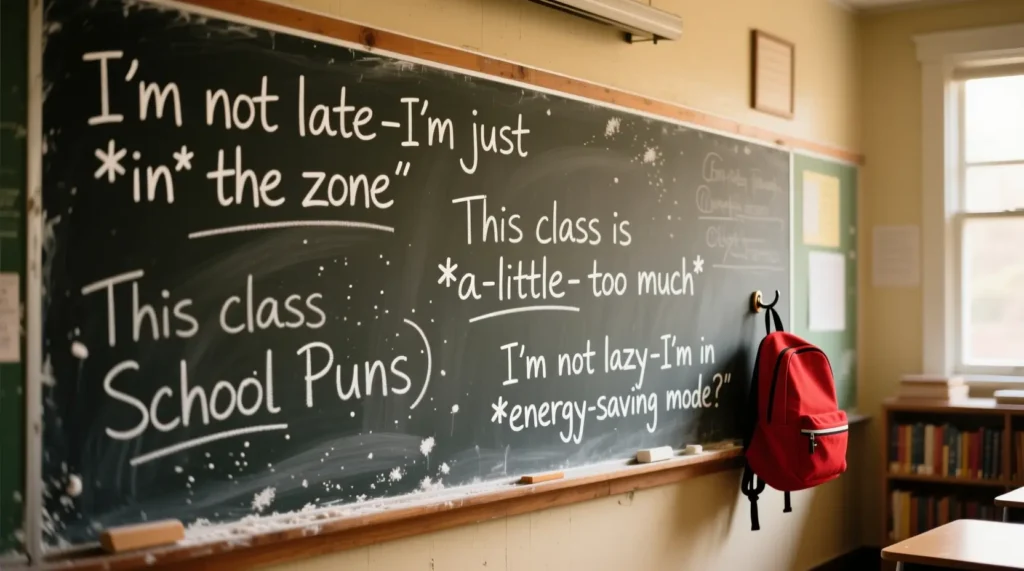 I'm not late–I'm just
*in* the zone"
This class is
*a-little- too much*
This class
School Puns)
I'm not lazy–I'm in
*energy-saving mode?"